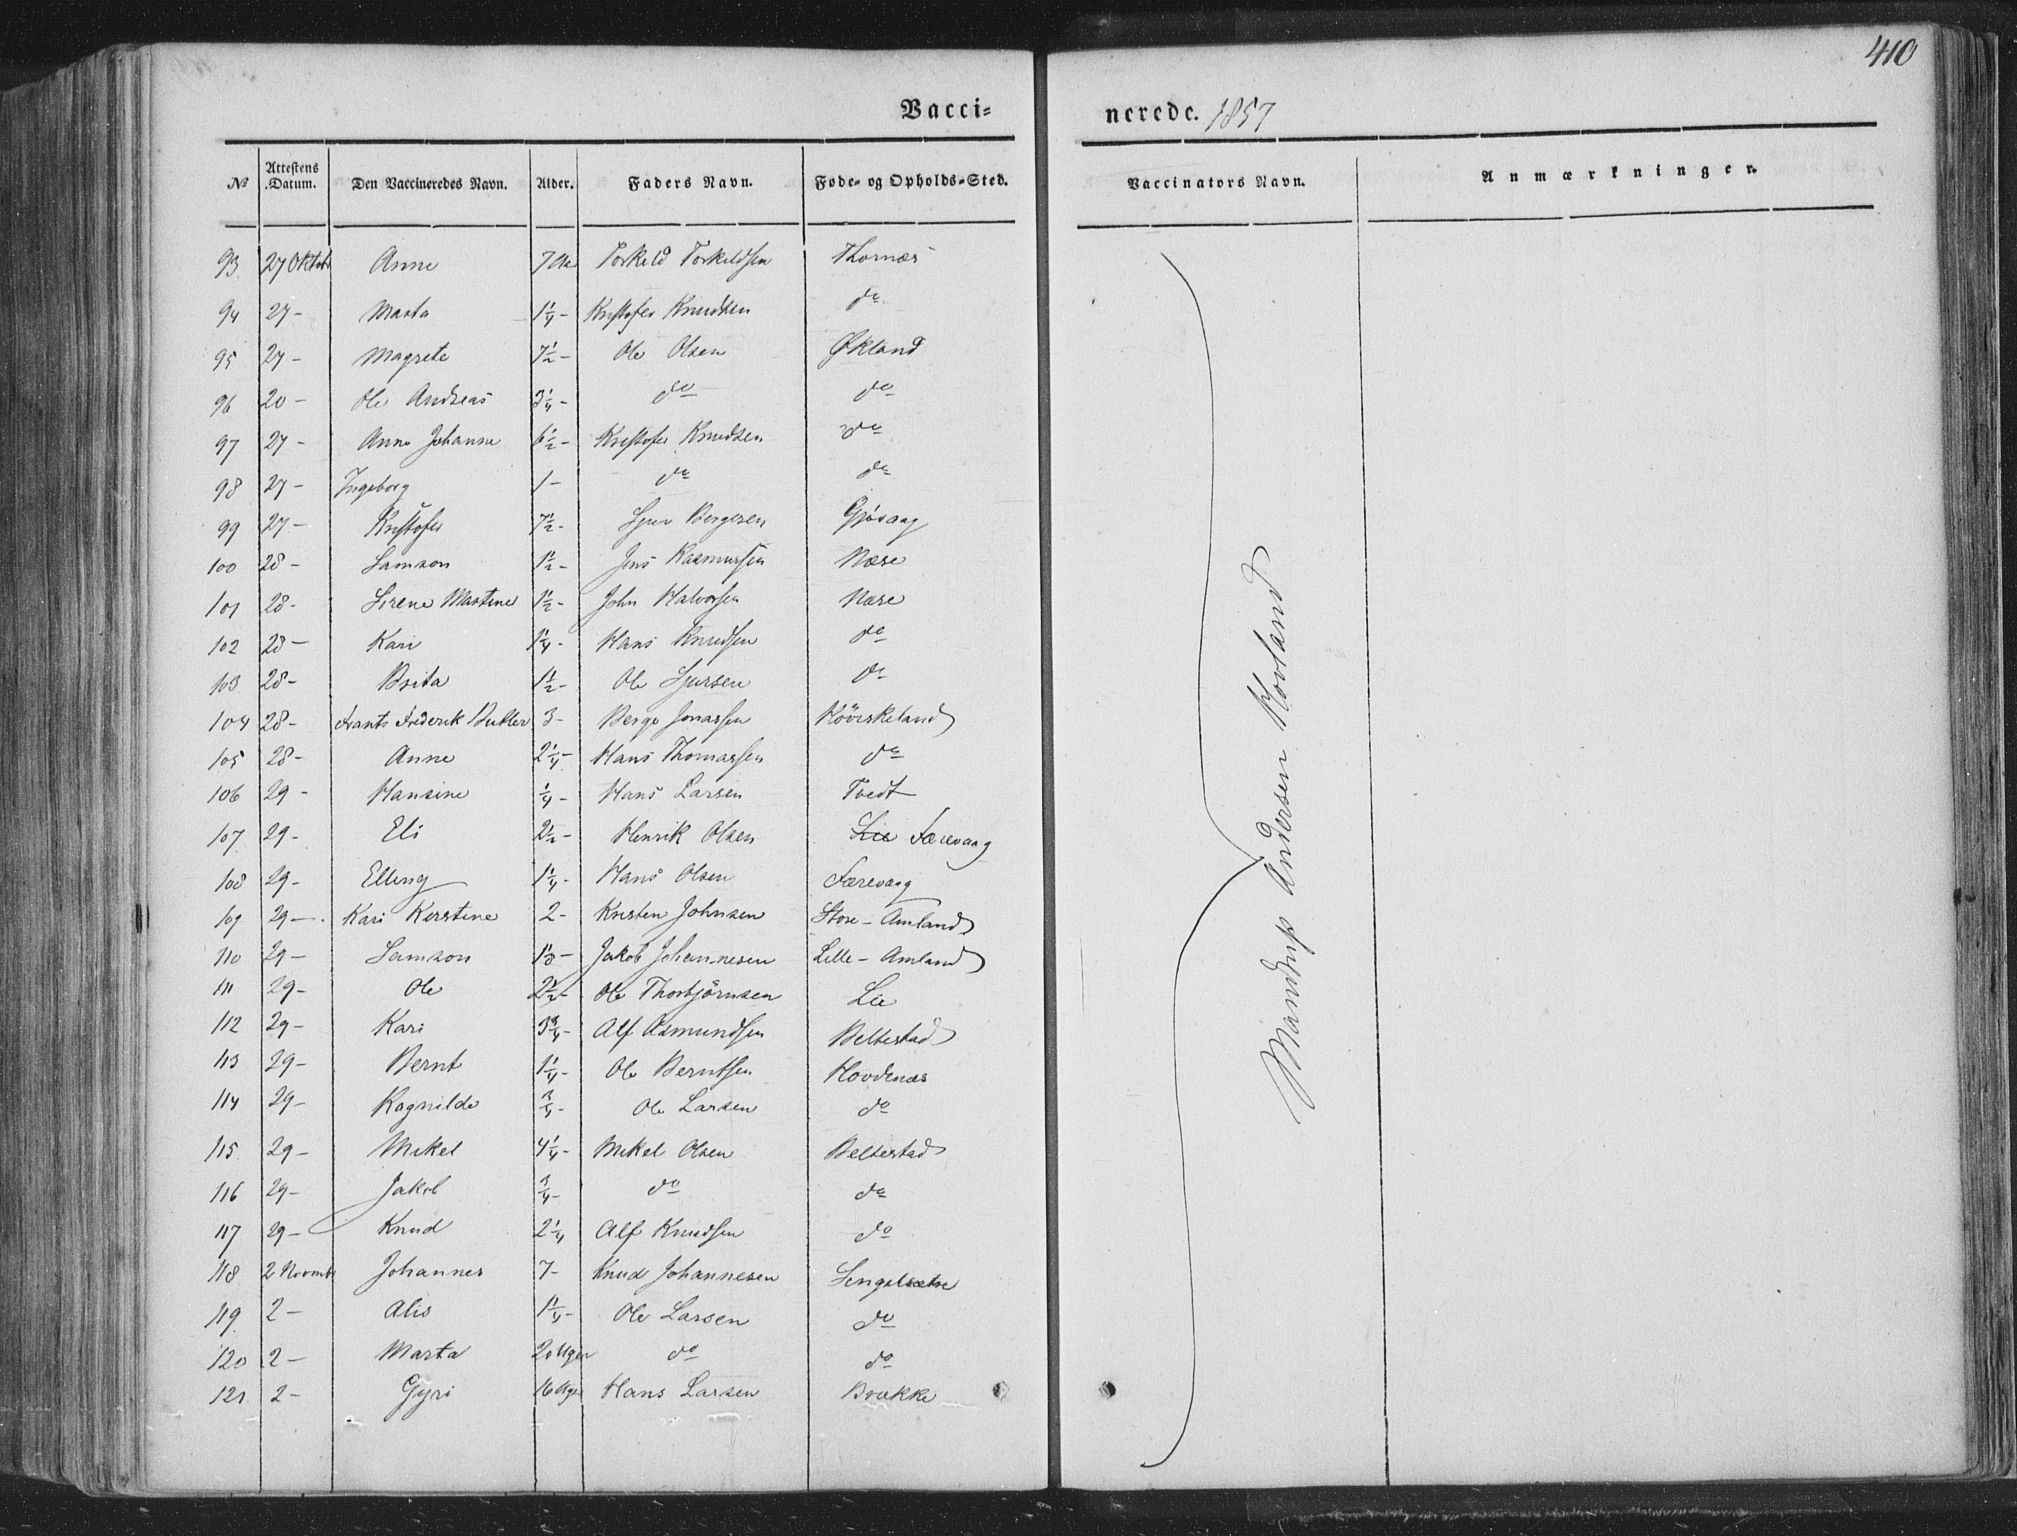 410
Vacci= nerede. 1857
No Attestens Datum. Den Vaccineredes Navn. Alder. Faders Navn. Føde- og Opholds-Sted. Vaccinators Navn. Anmærkninger.
93. 27 Oktob Anne 7 Torkeld Torkeldsen Thornæs
94 27 - Marta 1 1/4 - Kristofer Knudsen do
95 27 - Magrete 7 1/2 - Ole Olsen Økland
96 20 - Ole Andreas 3 1/4 - do do
97 27 - Anne Johanne 6 1/2 - Kristofer Knudsen do
98 27 - Ingeborg 1 - do do
99 27 - Kristofer 7 1/2 - Sjur Bergesen Gjøsaag
100 28 - Samson 1 1/2 - Jens Rasmussen Næse
101 28 - Sirene Martine 1 1/2 - John Halvorsen Næse
102 28 - Kari 1 1/4 - Hans Knudsen do
103 28 - Brita 1 1/2 - Ole Sjursen do
104 28 - Frants Frederik Butler 3 - Berge Jonassen Høviskeland
105 28 - Anne 2 1/4 - Hans Thomassen do
106 29 - Hansine 1/4 - Hans Larsen Tvedt
107. 29 - Eli 2 1/2 - Henrik Olsen Lie Færevaag
108 29 - Elling 1 1/4 - Hans Olsen Færevaag
109 29 - Kari Kerstine 2 - Kristen Johnsen Store - Amland
110 29 - Samson 1 1/3 - Jakob Johannesen Lille - Amland
111 29 - Ole 2 1/2 - Ole Thorbjörnsen Lie
112 29 - Kari 3 3/4 - Alf Asmundsen Beltestad
113 29 - Bernt 1 1/4 - Ole Berntsen Hovdenæs
114 29 - Ragnilde 3/4 - Ole Larsen do
115 29 - Mikel 4 1/4 - Mikel Olsen Beltestad
116 29 - Jakob 3/4 - do do
117 29 - Knud 2 1/4 Alf Knudsen do
118 2 Novmb Johannes 7 - Knud Johannesen Sengelsætre
119. 2 - Alis 1 1/4 - Ole Larsen do
120 2 - Marta 20 Uger do do
121 2 - Gyri 16 Uger Hans Larsen Brække
Mandrup Andersen Hovland